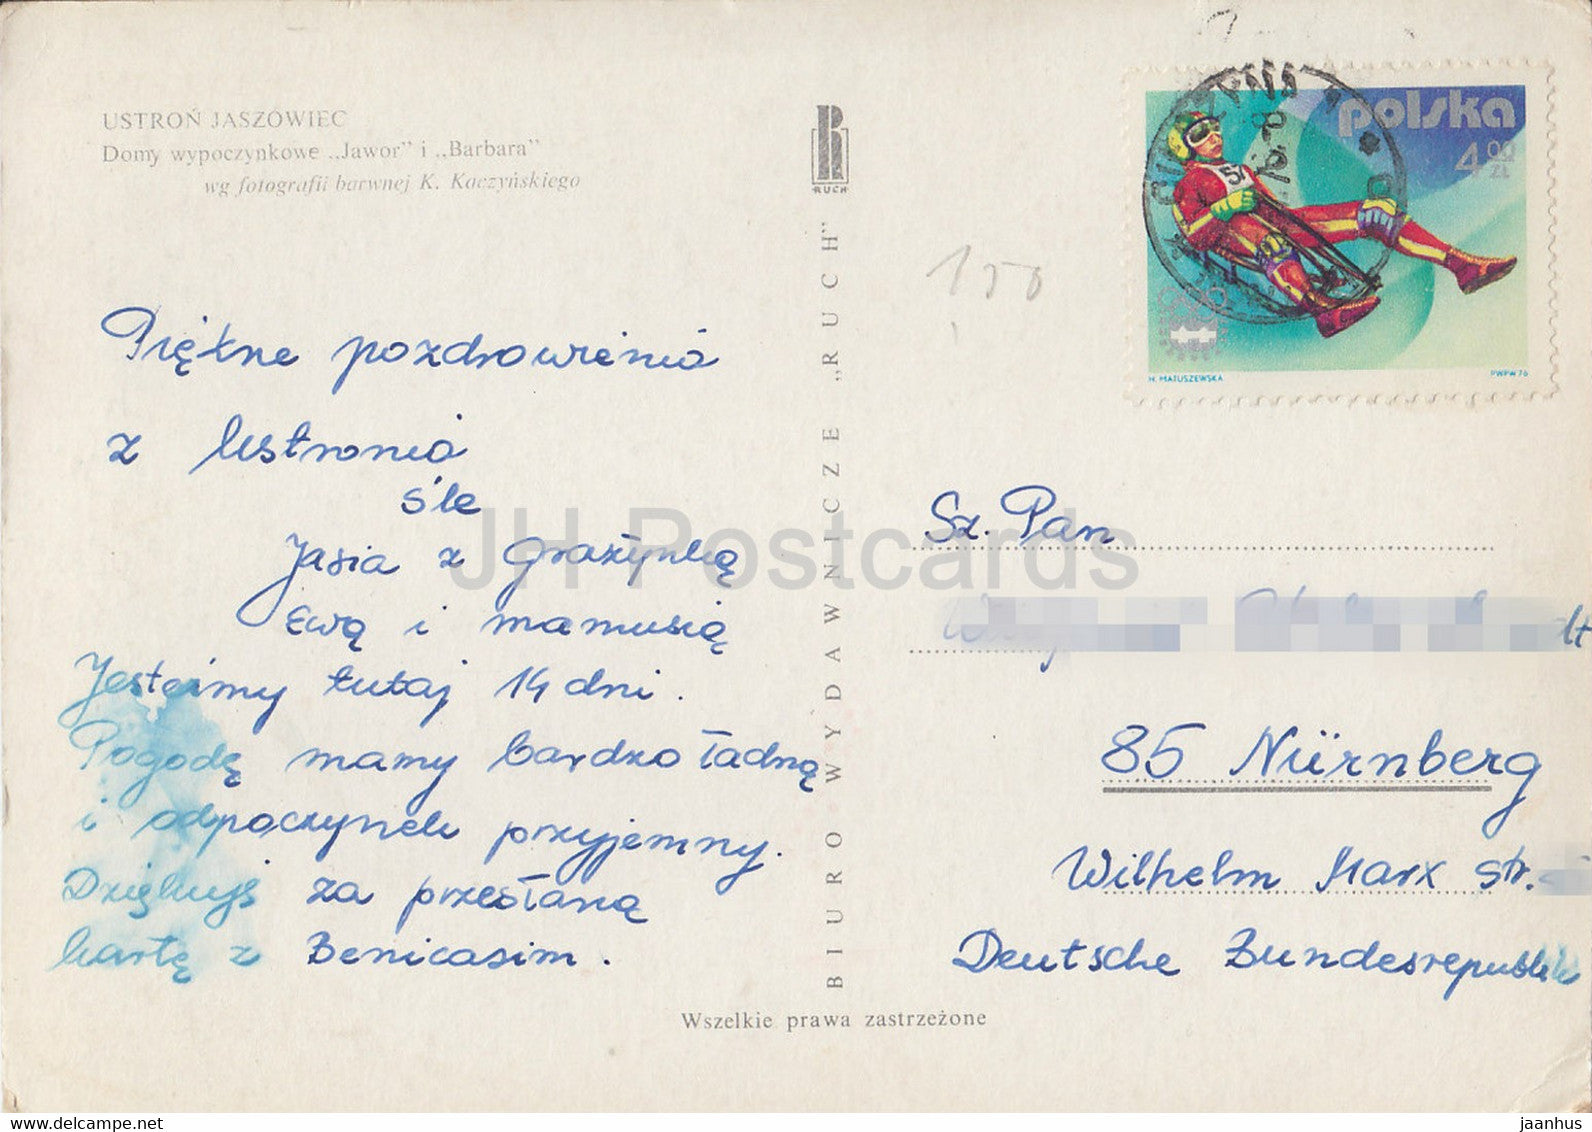 USTROŃ JASZOWIEC
Domy wypoczynkowe „Jawor” i „Barbara”
wg fotografii barwnej K. Kaczyńskiego
R
RUCH
Piękne pozdrowienia
z Ustronia
śle
Jasia z Grażynką
Ewą i mamusią
Jesteśmy tutaj 14 dni.
Pogodę mamy bardzo ładną
i odpoczynek przyjemny.
Dziękuję za przesłaną
kartę z Benicasim.
BIURO WYDAWNICZE „RUCH”
polska
4,00 ZŁ
57
H. MATUSZEWSKA
PWPW 76
150
Sz. Pan
dt
85 Nürnberg
Wilhelm Marx str.
Deutsche Bundesrepublik
Wszelkie prawa zastrzeżone
JH Postcards
www.delcampe.net
jaanhus